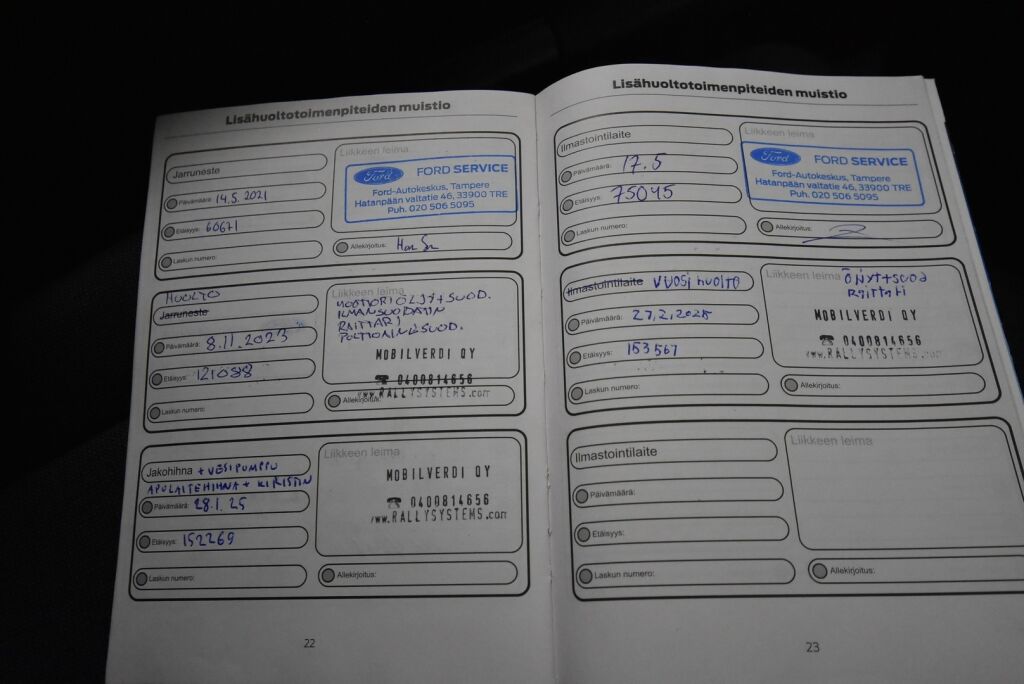 Lisähuoltotoimenpiteiden muistio
Jarruneste
Päivämäärä: 14.5.2021
Etäisyys: 60671
Laskun numero:
Liikkeen leima
Ford FORD SERVICE
Ford-Autokeskus, Tampere
Hatanpään valtatie 46, 33900 TRE
Puh. 020 506 5095
Allekirjoitus:
HUOLTO
Jarruneste
Päivämäärä: 8.11.2023
Etäisyys: 121088
Laskun numero:
Liikkeen leima
MOOTTORIÖLJY + SUOD.
ILMANSUODATIN
RAITTARI
POLTTOAINESUOD.
MOBILVERDI OY
☎ 0400814656
www.RALLYSYSTEMS.com
Allekirjoitus:
Jakohihna + VESIPUMPPU
APULAITEHIHNA + KIRISTIN
Päivämäärä: 28.1.25
Etäisyys: 152269
Laskun numero:
Liikkeen leima
MOBILVERDI OY
☎ 0400814656
www.RALLYSYSTEMS.com
Allekirjoitus:
22
Lisähuoltotoimenpiteiden muistio
Ilmastointilaite
Päivämäärä: 17.5
Etäisyys: 75045
Laskun numero:
Liikkeen leima
Ford FORD SERVICE
Ford-Autokeskus, Tampere
Hatanpään valtatie 46, 33900 TRE
Puh. 020 506 5095
Allekirjoitus:
Ilmastointilaite Vuosihuolto
Päivämäärä: 27,2,2025
Etäisyys: 153567
Laskun numero:
Liikkeen leima
Raittari
MOBILVERDI OY
☎ 0400814656
www.RALLYSYSTEMS.com
Allekirjoitus:
Ilmastointilaite
Päivämäärä:
Etäisyys:
Laskun numero:
Liikkeen leima
Allekirjoitus:
23